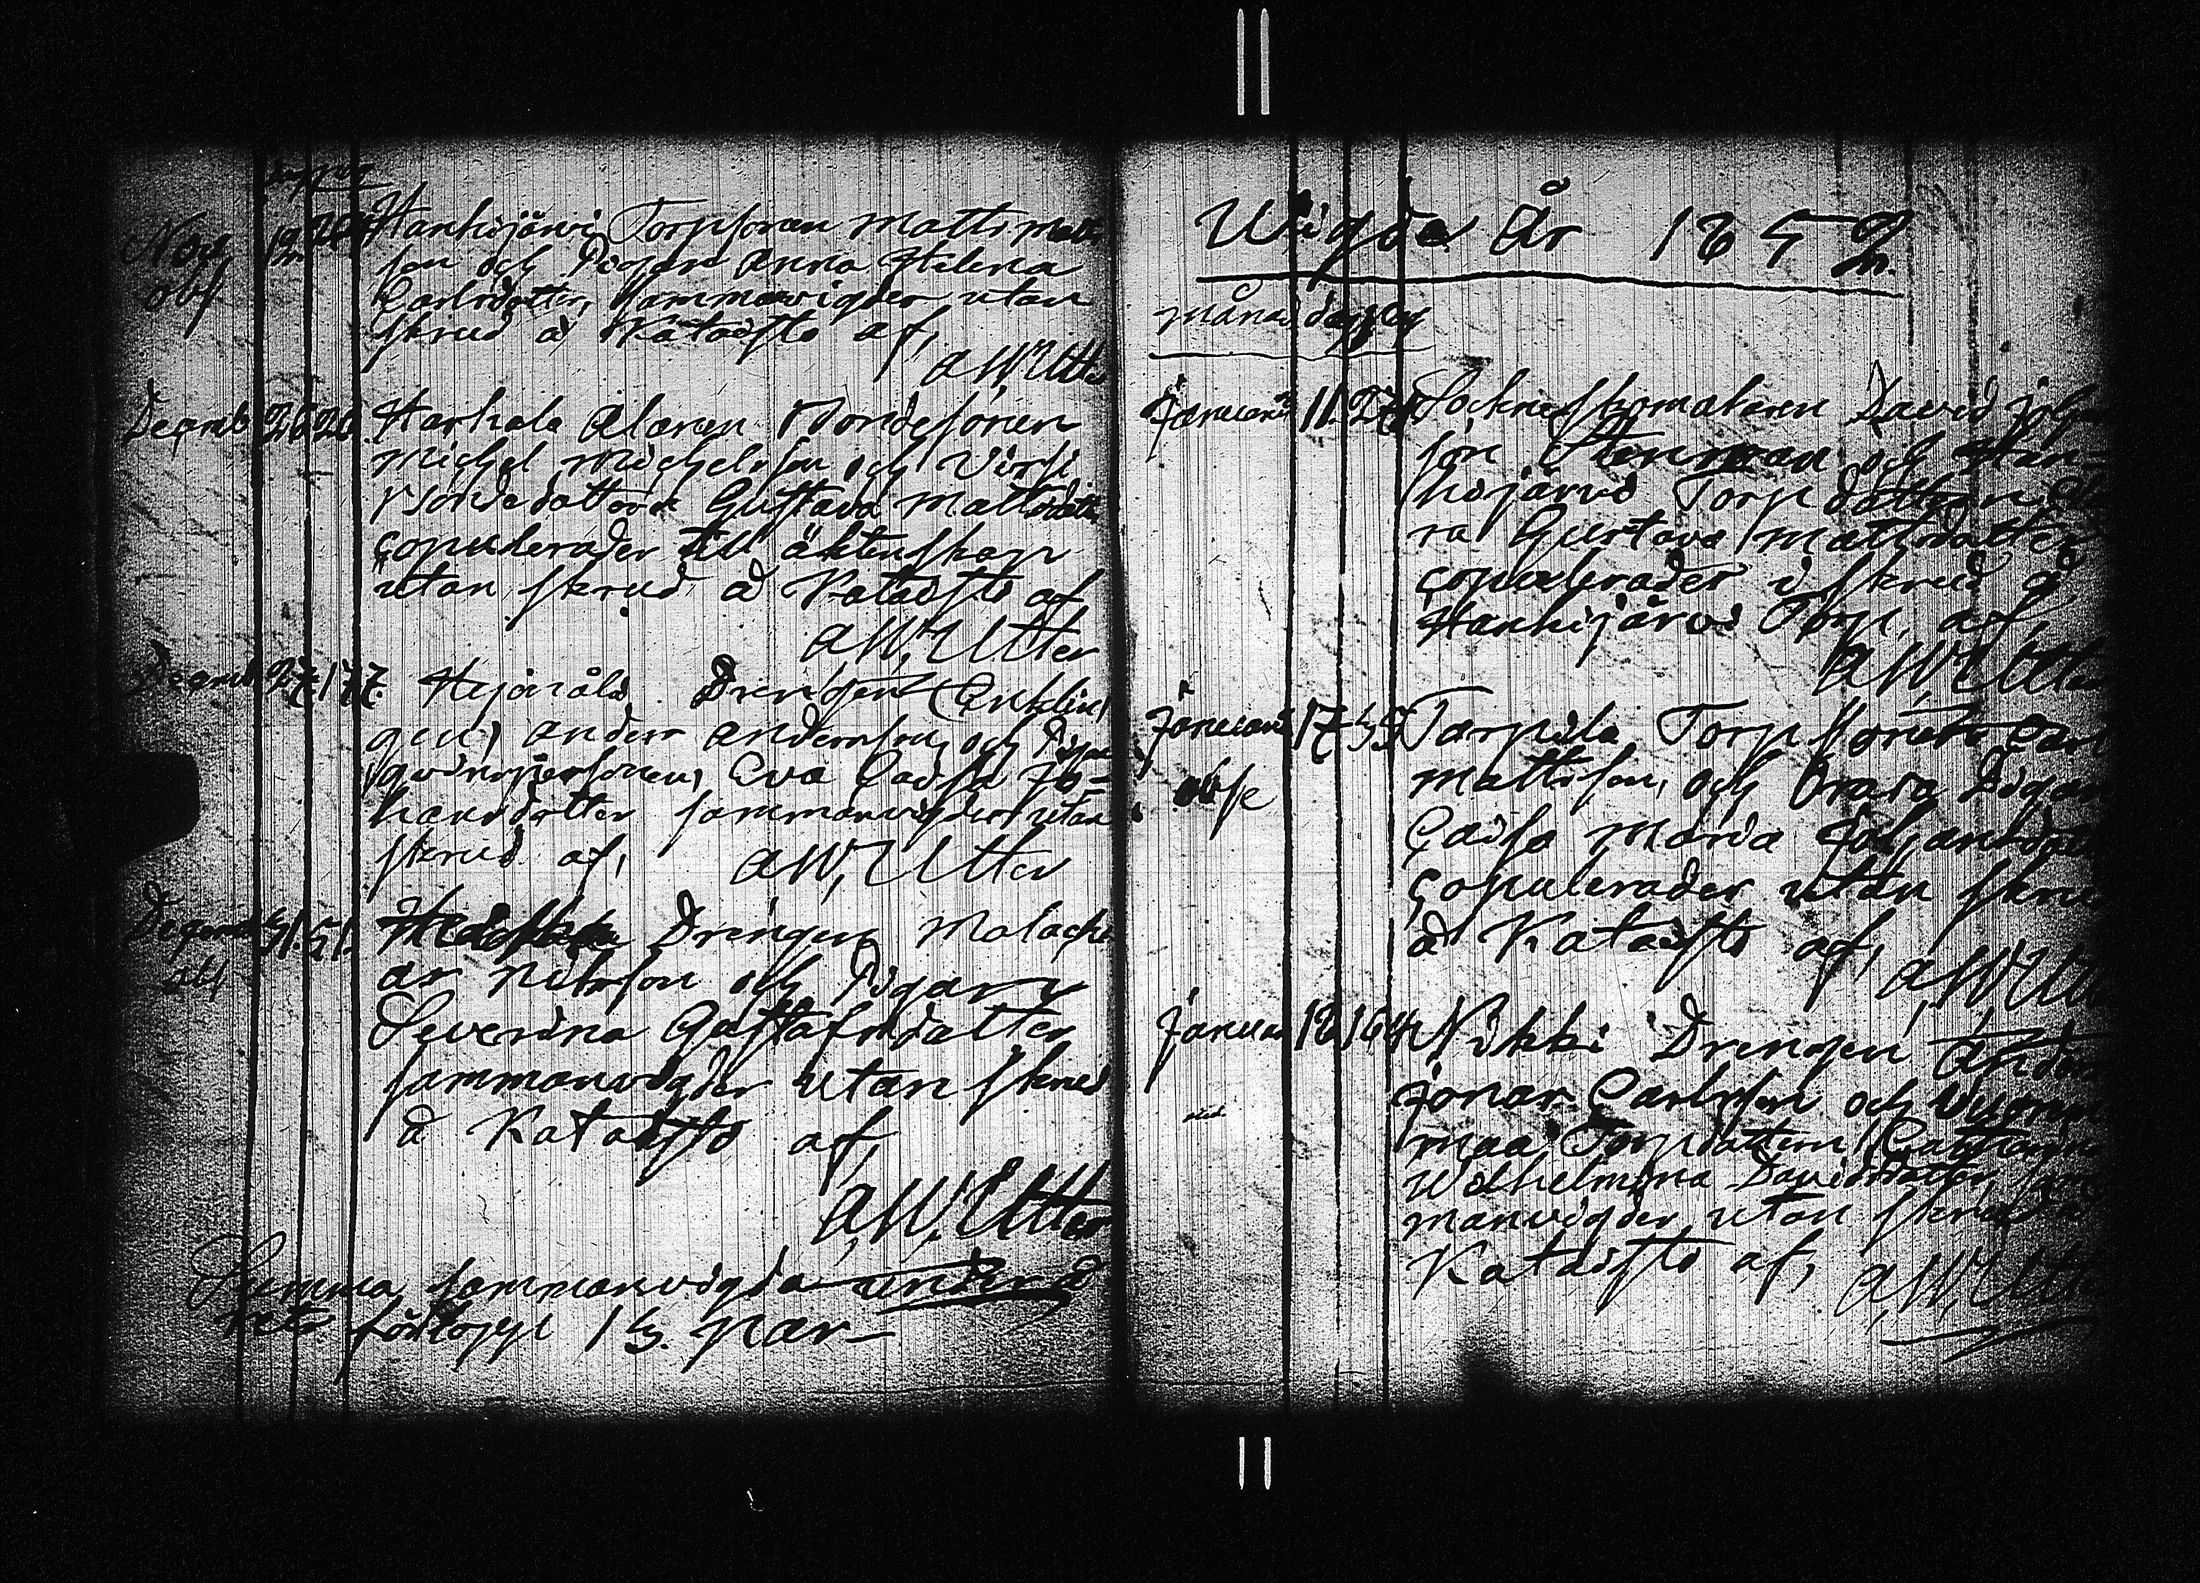 Nov 19. Hanhijärvi Torpsonen Matts Matts
obs son och Pigan Anna Helena
Carlsdotter, sammanvigder utan
skrud å Kataisto af,
A W, Utter
Decemb 26 26. Harhala Alanen Bondesonen
Michel Michelsson och Virsi
Bondedottren Gustava Mattsdott
copulerader till äktenskap
utan skrud å Kataisto af
A W, Utter
Decemb 27 177. Drengen (Enklin
gen) Anders Andersson, och Pigan
Eva Caisa Jo-
hansdotter sammanvigder utan
skrud af, A W, Utter
Decemb 31. 51. Drengen Malachi
obs as Nilsson och Pigan
Severina Gustafsdotter
sammanvigder utan skrud
å Kataisto af,
A, W, Utter
Summa sammanvigda under å
ret förlopp 13. par
Wigde År 1852
månad dag
Januari 11. Sockneskomakaren David Joh
son Stenman och Han-
hijärvi Torpdottren
ra Gustava Mattsdotter
copulerader i skrud å
Hanhijärvi Torp, af
A W, Utter
Januari 17 33 Tarpila Torpsonen Carl
obs Mattsson, och Pigan
Caisa Maria Johansdott
copulerader utan skru
å Kataisto af,
A, W, Utt
Januari 18 164 Nikki Drengen Anders
Jonas Carlsson och Vuoren
maa Torpdottren
Wilhelmina Davidsdotter, sam
manvigder, utan skrud å
Kataisto af, A, W, Utter